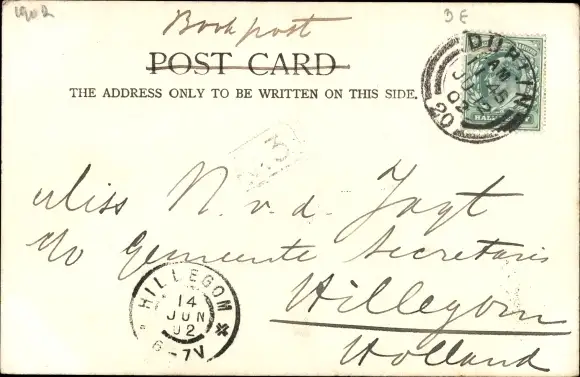 1902
3 E
Book post
POST CARD
THE ADDRESS ONLY TO BE WRITTEN ON THIS SIDE.
DUBLIN
AM
45
JU 12
02
20
HALF
No 3
Miss N. v. d. Jagt
c/o Gemeente Secretaris
Hillegom
Holland
HILLEGOM
14
JUN
02
6-7V